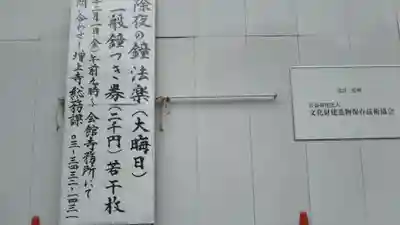 除夜の鐘 法楽(大晦日)
一般鐘つき券(二千円)若干枚
十二月一日(金)午前九時〜 会館寺務所にて
増上寺総務課 〇三-三四三二-一四三一
文化財建造物保存技術協会